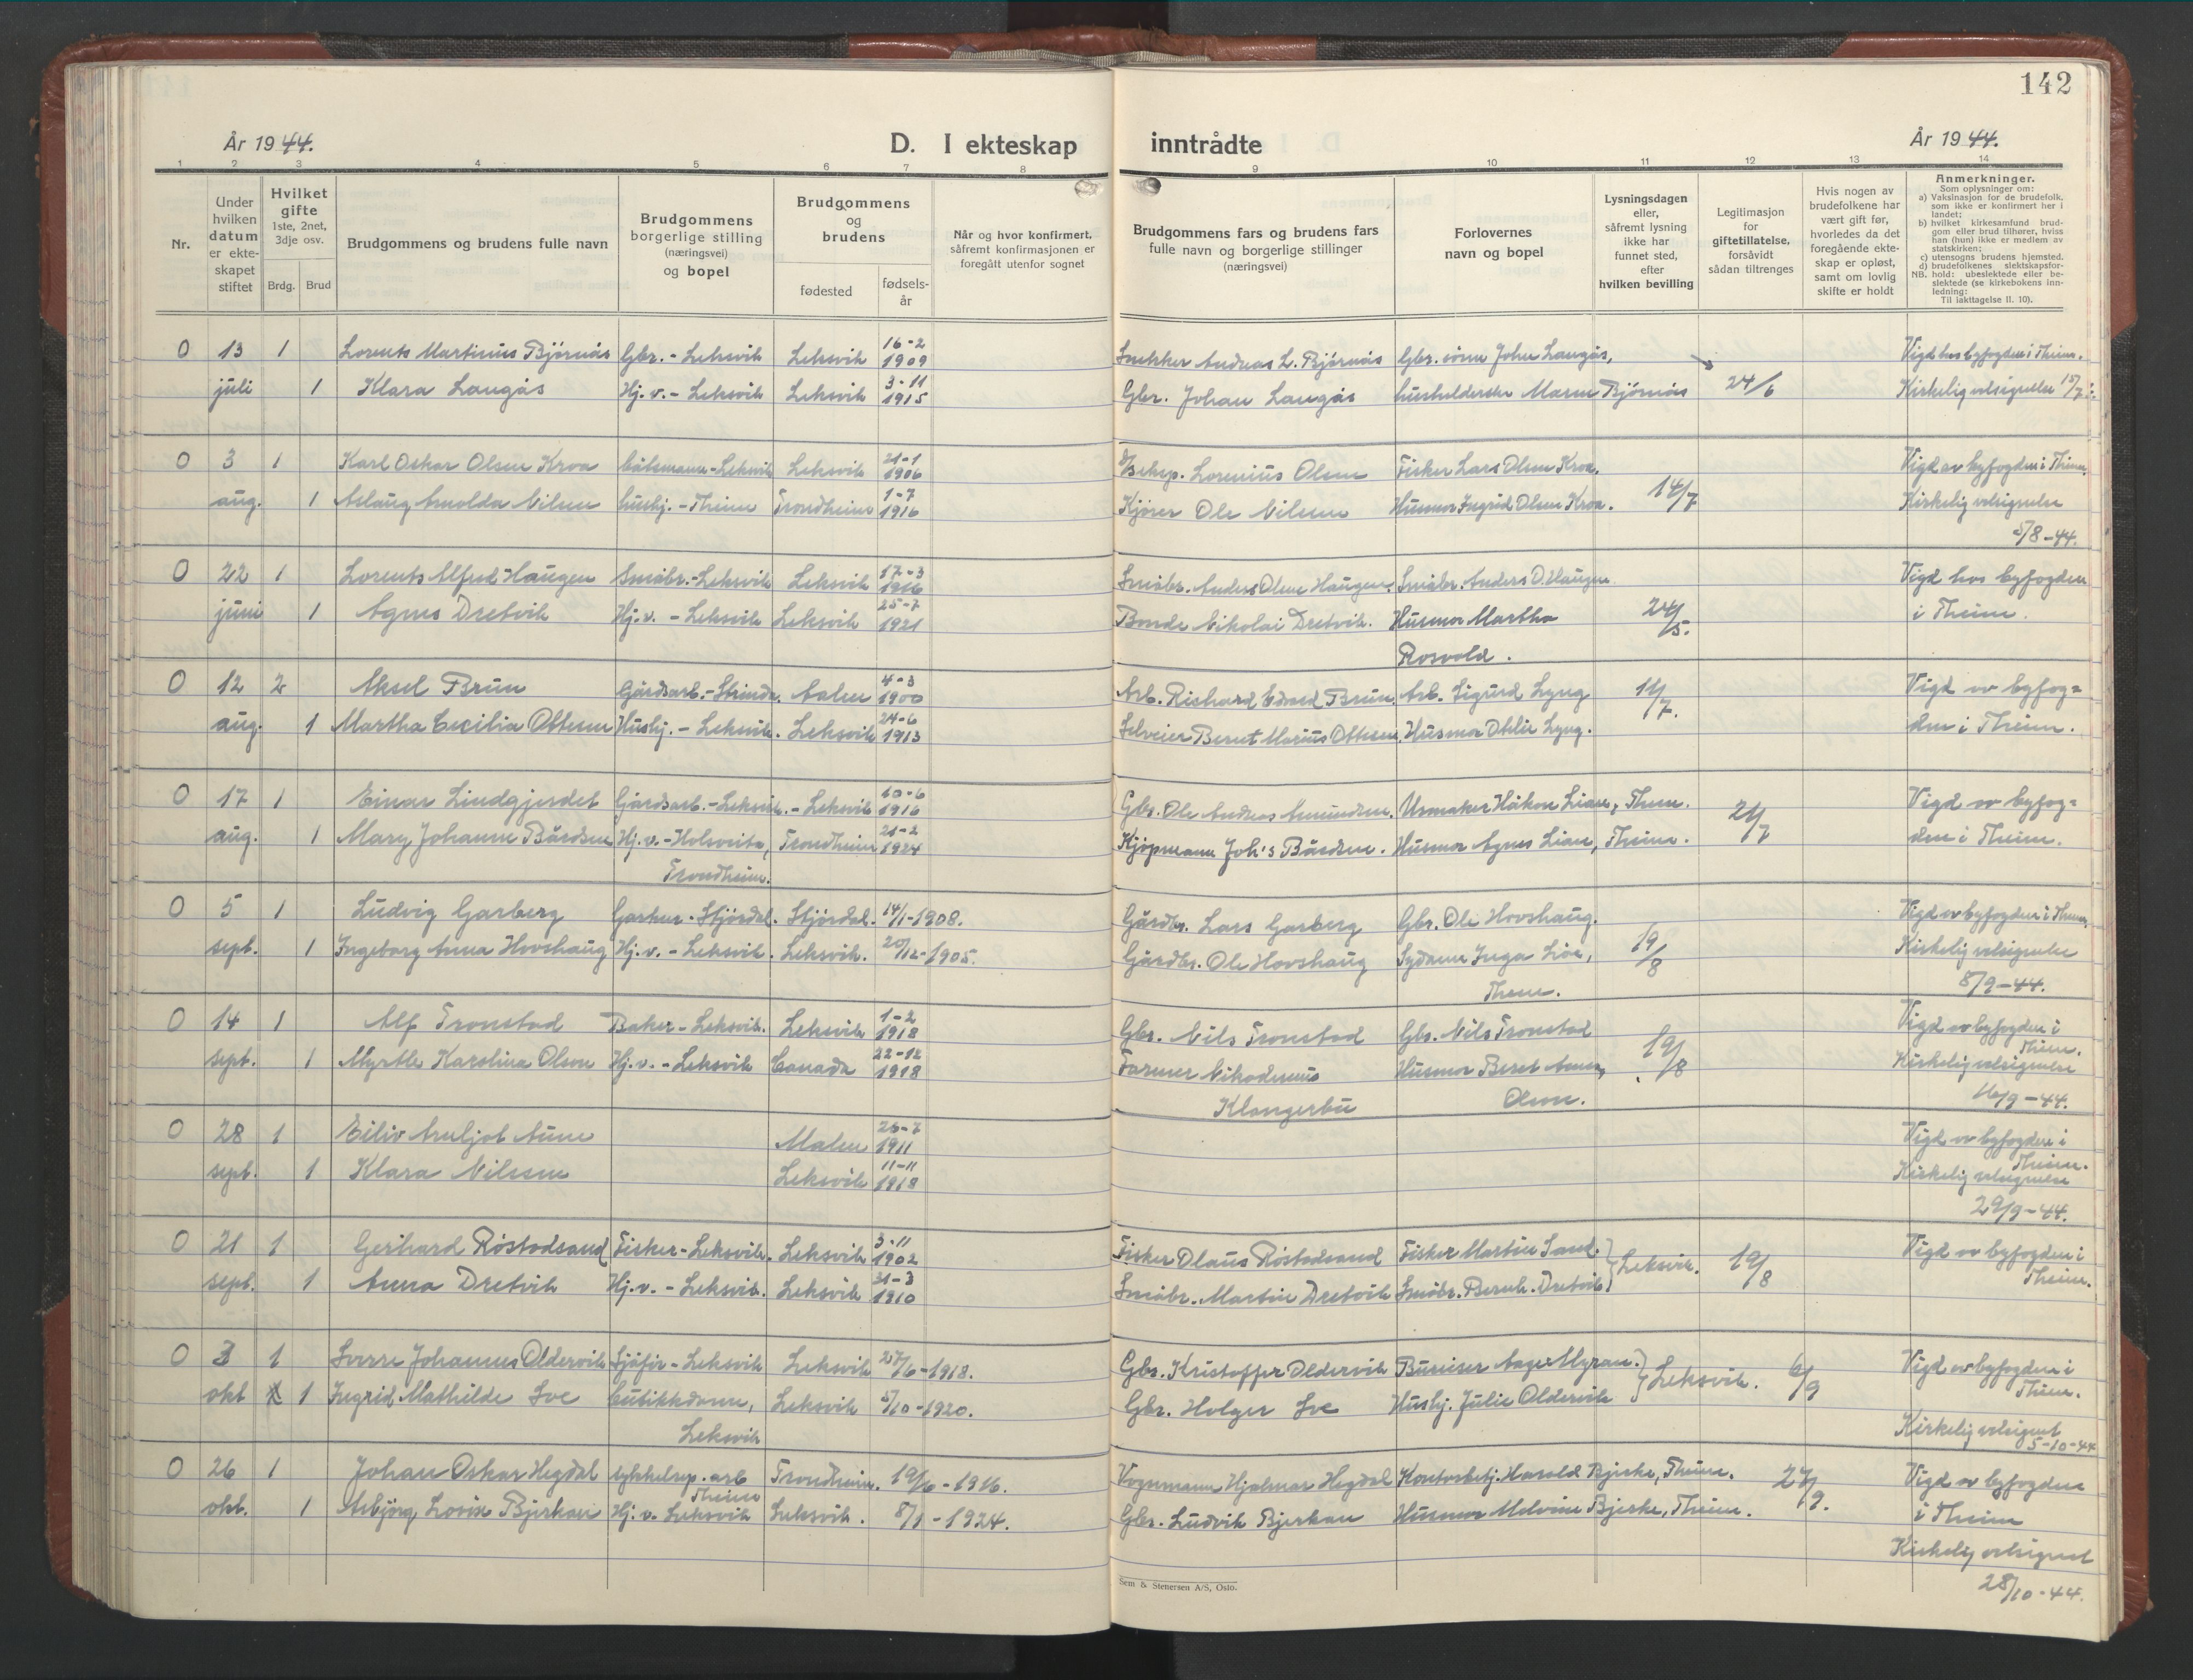 142
År 1944.
D. I ekteskap inntrådte
År 1944.
1 2 3 4 5 6 7 8 9 10 11 12 13 14
Nr.
Under hvilken datum er ekte- skapet stiftet
Hvilket gifte 1ste, 2net, 3dje osv.
Brdg. Brud
Brudgommens og brudens fulle navn
Brudgommens borgerlige stilling (næringsvei) og bopel
Brudgommens og brudens
fødested
fødsels- år
Når og hvor konfirmert, såfremt konfirmasjonen er foregått utenfor sognet
Brudgommens fars og brudens fars fulle navn og borgerlige stillinger (næringsvei)
Forlovernes navn og bopel
Lysningsdagen eller, såfremt lysning ikke har funnet sted, efter hvilken bevilling
Legitimasjon for giftetillatelse, forsåvidt sådan tiltrenges
Hvis nogen av brudefolkene har vært gift før, hvorledes da det foregående ekte- skap er opløst, samt om lovlig skifte er holdt
Anmerkninger.
Som oplysninger om:
a) Vaksinasjon for de brudefolk, som ikke er konfirmert her i landet;
b) hvilket kirkesamfund brud- gom eller brud tilhører, hviss han (hun) ikke er medlem av statskirken;
c) utensogns brudens hjemsted.
d) brudefolkenes slektskapsfor- hold: ubeslektede eller be- slektede (se kirkebokens inn- ledning:
NB. Til iakttagelse II. 10).
0 13 1 Lorents Martinius Bjørnås Gbr. - Leksvik Leksvik 16-2 1909 Snekker Andreas L. Bjørnås Gbr. sønn John Langås, Vigd hos byfogden i Thrm.
juli 1 Klara Langås Hj.v. - Leksvik Leksvik 3-11 1915 Gbr. Johan Langås husholderske Bjørnås 24/6 Kirkelig velsignelse 15/7
0 3 1 Karl Oskar Olsen Kroa Båtsmann - Leksvik Leksvik 21-1 1906 Lorenius Olsen Fisker Lars Olsen Kroa. Vigd av byfogden i Thrm.
aug. 1 Aslaug Arnolda Nilsen hushj. - Thrm Trondheim 1-7 1916 Kjører Ole Nilsen Husmor Ingrid Olsen Kroa. 14/7 Kirkelig velsignelse
5/8-44.
0 22 1 Lorents Alfred Haugen Småbr. - Leksvik Leksvik 17-3 1916 Småbr. Anders Olsen Haugen. Småbr. Anders O. Haugen Vigd hos byfogden
juni 1 Agnes Dretvik Hj.v. - Leksvik Leksvik 25-7 1921 Bonde Nikolai Dretvik. Husmor Martha 24/5. i Thrm.
Rosvold.
0 12 2 Aksel Brun Gårdsarb. - Strinda. Aalen 4-3 1900 Arb. Richard Edvard Brun Arb. Sigurd Lyng 11/7. Vigd av byfog-
aug. 1 Martha Cecilia Ottesen Hushj. - Leksvik. Leksvik 24-6 1913 Selveier Bernt Marius Ottesen. Husmor Otelie Lyng. den i Thrm.
0 17 1 Einar Lindgjerdet Gårdsarb. - Leksvik. - Leksvik 10-6 1916 Gbr. Ole Andreas Amundsen. Urmaker Håkon Lian, Thrm. Vigd av byfog-
aug. 1 Mary Johanne Bårdsen Hj.v. - Trondheim 21-2 1924 Kjøpmann Joh's Bårdsen. Husmor Agnes Lian, Thrm. 21/7 den i Thrm.
Trondheim.
0 5 1 Ludvig Garberg Garver - Stjørdal. Stjørdal. 14/1-1908. Gårdbr. Lars Garberg Gbr. Ole Hovshaug. Vigd av byfogden i Thrm.
sept. 1 Ingeborg Anna Hovshaug Hj.v. - Leksvik. Leksvik. 20/12-1905. Gårdbr. Ole Hovshaug Sydame Inga Lie, 19/8 Kirkelig velsignelse
Thrm. 8/9-44.
0 14 1 Alf Tronstad Baker - Leksvik. Leksvik 1-2 1918 Gbr. Nils Tronstad Gbr. Nils Tronstad Vigd av byfogden i
Thrm.
sept. 1 Myrtle Karolina Olson Hj.v. - Leksvik Canada 22-12 1918 Farmer Nikodemus Husmor Beret Anna 19/8 Kirkelig velsignelse
Klangerbu Olson. 16/9-44.
0 28 1 Eiliv Arnljot Aune Malm 26-7 1911 Vigd av byfogden i
Thrm.
sept. 1 Klara Nilssen Leksvik 11-11 1918 Kirkelig velsignelse
29/9-44.
0 21 1 Gerhard Røstadsand Fisker - Leksvik. Leksvik 3-11 1902 Fisker Olaus Røstadsand Fisker Martin Sand. Leksvik. 19/8 Vigd av byfogden i
Thrm.
sept. 1 Anna Dretvik Hj.v. - Leksvik. Leksvik 31-3 1910 Småbr. Martin Dretvik Småbr. Bernh. Dretvik
0 3 1 Sverre Johannes Oldervik Sjåfør - Leksvik Leksvik 27/6-1918. Gbr. Kristoffer Oldervik Bureiser Aage Myran. Leksvik. 6/9 Vigd av byfogden i
Thrm.
okt 1 Ingrid Mathilde Sve Butikkdame, Leksvik 5/10-1920. Gbr. Holger Sve Hushj. Julie Oldervik
Leksvik Kirkelig velsignet
5-10-44
0 26 1 Johan Oskar Hegdal sykkelrep. arb Thrm Trondheim. 19/6-1916. Vognmann Hjalmar Hegdal Kontorbetj. Harald Bjerke, Thrm. 27/9. Vigd av byfogden
okt. 1 Asbjørg Lovise Bjerkan Hj.v. Leksvik Leksvik. 8/1-1924. Gbr. Ludvik Bjerkan Husmor Malvine Bjerke, Thrm. i Thrm
Kirkelig velsignet
28/10-44.
Sem & Stenersen A/S, Oslo.